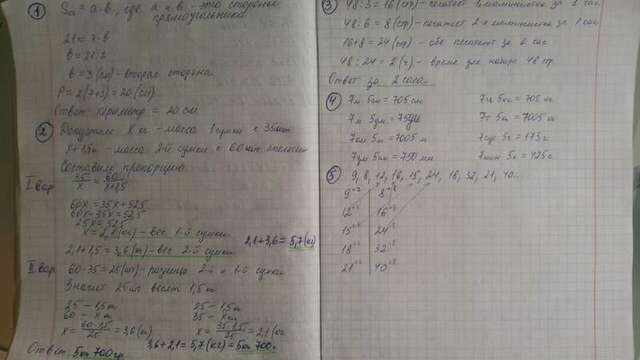 ① Sп = a·b, где a и b - это стороны
прямоугольника
21 = 7·b
b = 21:7
b = 3 (см) - вторая сторона
P = 2(7+3) = 20 (см)
Ответ: периметр = 20 см
② Допустим X кг - масса 1 сумки с 35шт.
X+1,5 - масса 2-й сумки с 60шт.
Составим пропорцию
I вар.
35/x = 60/x+1,5
60x = 35x + 52,5
60x-35x = 52,5
25x = 52,5
x = 2,1 (кг) - вес 1-й сумки
2,1+1,5 = 3,6 (кг) - вес 2-й сумки
2,1+3,6 = 5,7 (кг)
II вар.
60-35 = 25 (шт) - разница 2-й и 1-й сумки
Значит 25шт весят 1,5кг
25 – 1,5кг 25 – 1,5кг
60 – x кг 35 – x кг
x = 60·1,5/25 = 3,6 (кг) x = 35·1,5/25 = 2,1 (кг)
3,6+2,1 = 5,7 (кг) = 5кг 700г.
Ответ: 5кг 700гр.
③ 48:3 = 16 (стр) - печатает 1 машинистка за 1 час
48:6 = 8 (стр) - печатает 2-я машинистка за 1 час
16+8 = 24 (стр) - обе печатают за 1 час
48:24 = 2 (ч) - время для набора 48 стр.
Ответ: за 2 часа
④ 7м 5см = 705 см 7ц 5кг = 705 кг
7м 5дм = 75дм 7т 5кг = 7005 кг
7км 5м = 7005 м 7сут 5ч = 173 ч
7дм 5см = 750 мм 7мин 5с = 425 с.
⑤ 9, 8, 12, 16, 15, 24, 18, 32, 21, 40...
9+3 8+8
12+3 16+8
15+3 24+8
18+3 32+8
21+3 40+8